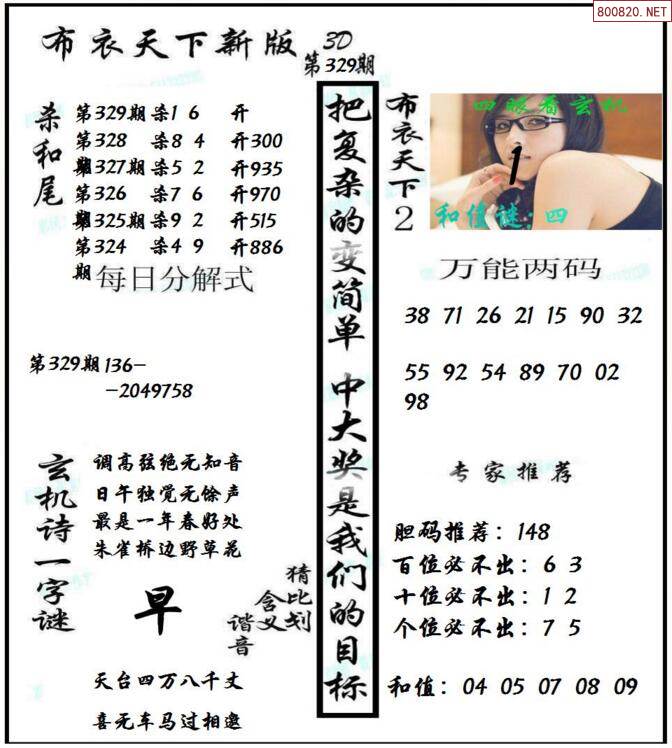 800820.NET
布衣天下新版 3D
第329期
杀和尾
第329期 杀1 6 开
第328 杀8 4 开300
期
第327期 杀5 2 开935
第326 杀7 6 开970
期
第325期 杀9 2 开515
第324 杀4 9 开886
期
每日分解式
第329期 136-
-2049758
玄机诗一字谜
调高弦绝无知音
日午独觉无馀声
最是一年春好处
朱雀桥边野草花
早
猜比划
含义
谐音
天台四万八千丈
喜无车马过相邀
把复杂的变简单 中大奖是我们的目标
布衣天下2
四眼看玄机
1
和值谜:四
万能两码
38 71 26 21 15 90 32
55 92 54 89 70 02
98
专家推荐
胆码推荐:148
百位必不出:6 3
十位必不出:1 2
个位必不出:7 5
和值:04 05 07 08 09